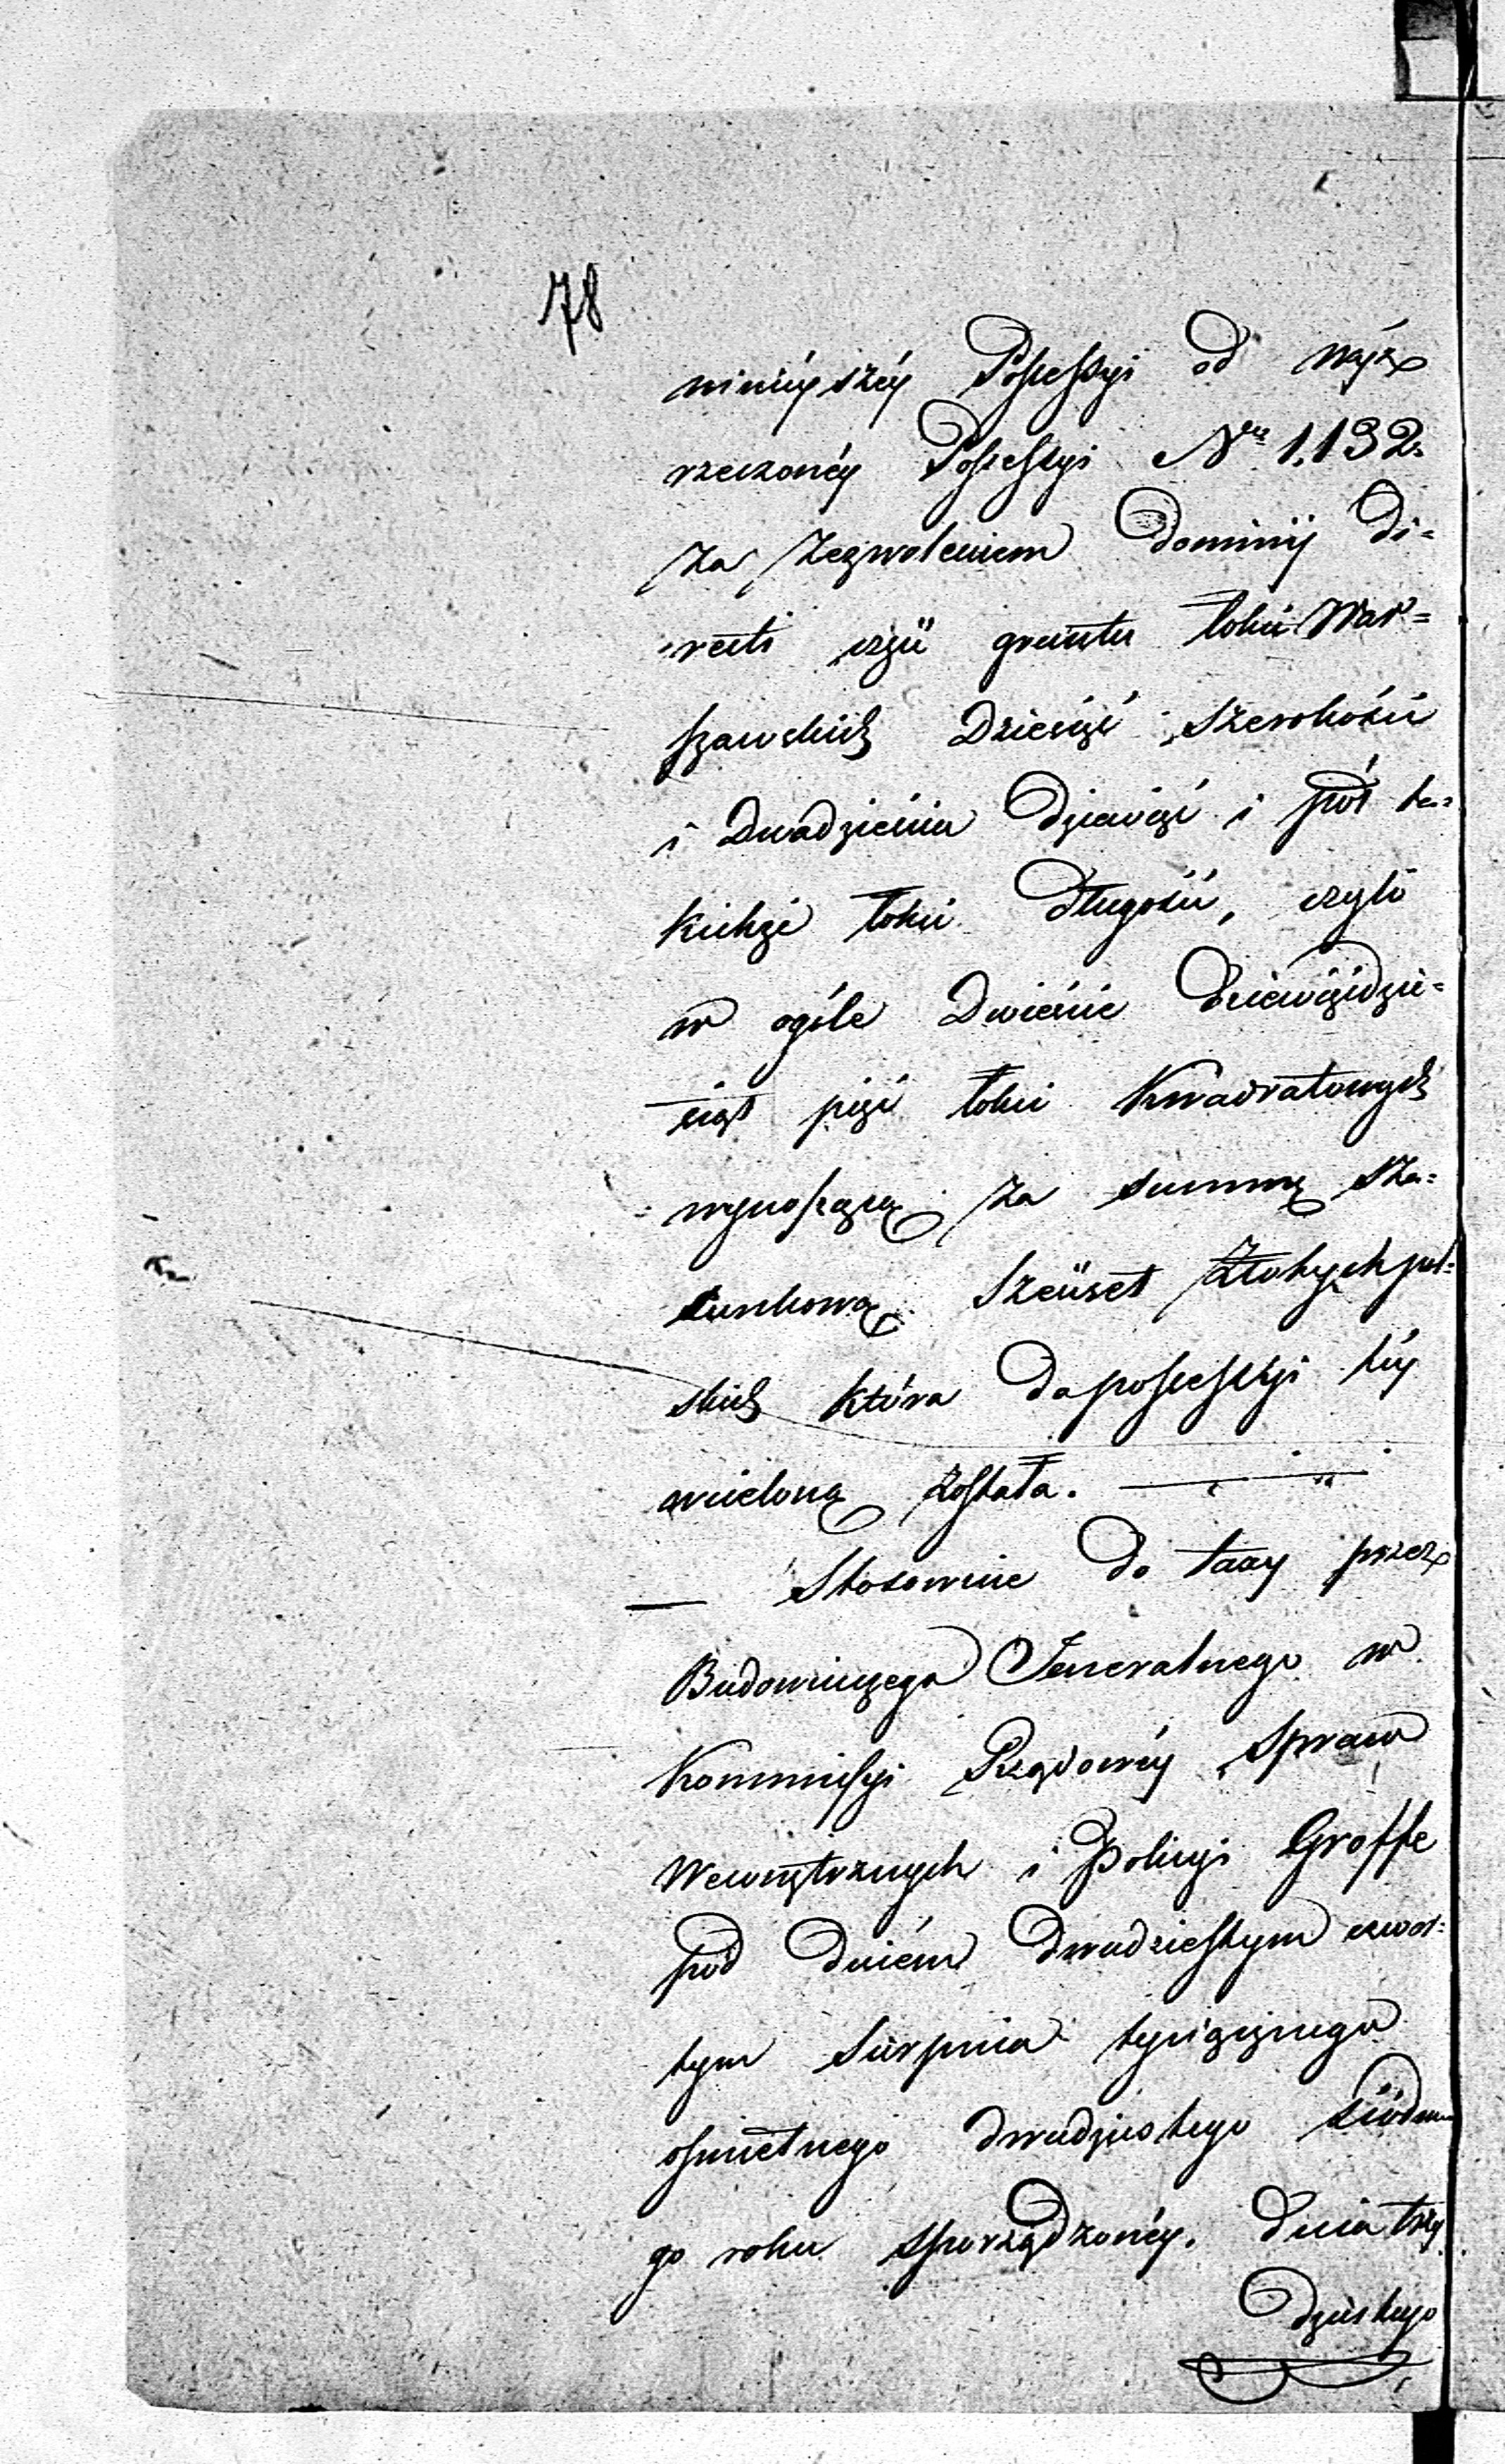 78
niniéyszéy Possessyi od wyż
rzeczonéy Possessyi Nru 1,132.
za zezwoleniem Dominij Di=
recti czyli gruntu łokci War=
szawskich Dziesięć szerokości
i Dwadzieścia Dziewięć i pół ta=
kichże łokci długości, czyli
w ogóle Dwieście Dziewięćdzie=
siąt pięć łokci Kwadratowych
wynoszącą za summę sza=
cunkową Sześćset Złotych pol=
skich która do possessyi téy
wcieloną została.
Stosownie do taxy przez
Budowniczego Jeneralnego w
Kommissyi Rządowéy Spraw
Wewnętrznych i Policyi Groffe
pod dniém dwudziestym czwar=
tym Sierpnia tysiącznego
osmsetnego dwudziestego siódme
go roku sporządzonéy. Dnia trzy
Dziestego